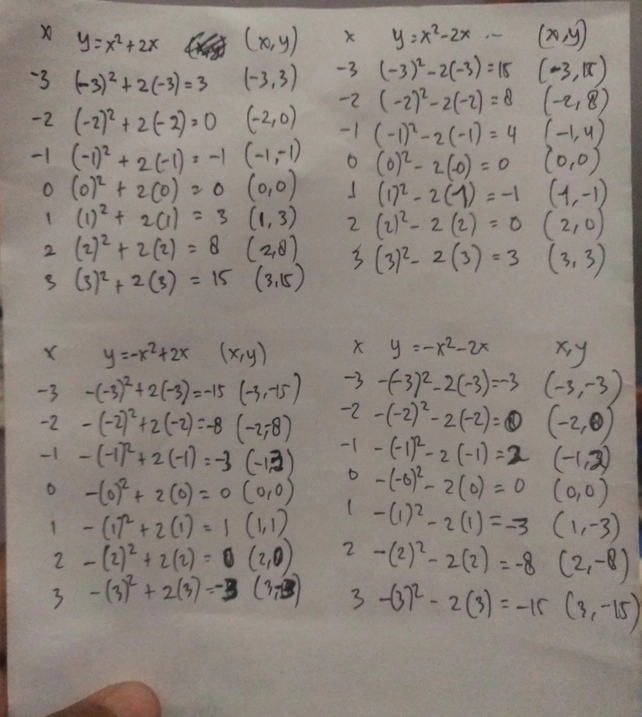 x y=x²+2x (x,y)
-3 (-3)²+2(-3)=3 (-3,3)
-2 (-2)²+2(-2)=0 (-2,0)
-1 (-1)²+2(-1)=-1 (-1,-1)
0 (0)²+2(0)=0 (0,0)
1 (1)²+2(1)=3 (1,3)
2 (2)²+2(2)=8 (2,8)
3 (3)²+2(3)=15 (3,15)
x y=x²-2x (x,y)
-3 (-3)²-2(-3)=15 (-3,15)
-2 (-2)²-2(-2)=8 (-2,8)
-1 (-1)²-2(-1)=4 (-1,4)
0 (0)²-2(0)=0 (0,0)
1 (1)²-2(1)=-1 (1,-1)
2 (2)²-2(2)=0 (2,0)
3 (3)²-2(3)=3 (3,3)
x y=-x²+2x (x,y)
-3 -(-3)²+2(-3)=-15 (-3,-15)
-2 -(-2)²+2(-2)=-8 (-2,-8)
-1 -(-1)²+2(-1)=-3
0 -(0)²+2(0)=0 (0,0)
1 -(1)²+2(1)=1 (1,1)
2 -(2)²+2(2)=0 (2,0)
3 -(3)²+2(3)=-3
x y=-x²-2x x,y
-3 -(-3)²-2(-3)=-3 (-3,-3)
-2 -(-2)²-2(-2)=0 (-2,0)
-1 -(-1)²-2(-1)=
0 -(-0)²-2(0)=0 (0,0)
1 -(1)²-2(1)=-3 (1,-3)
2 -(2)²-2(2)=-8 (2,-8)
3 -(3)²-2(3)=-15 (3,-15)